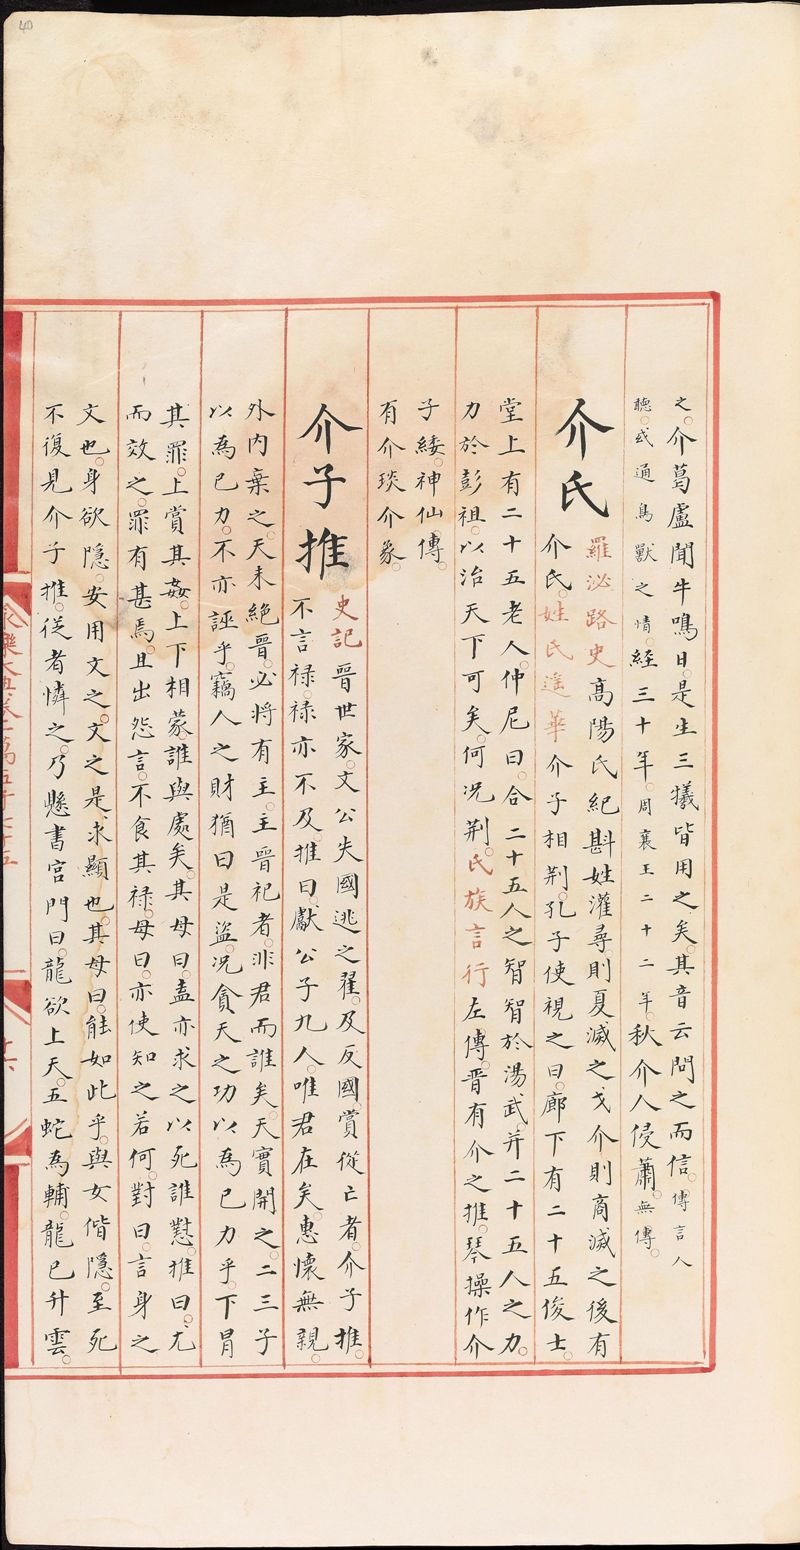 之。介葛盧聞牛鳴曰。是生三犧皆用之矣。其音云問之而信。傳言人
聽。或通鳥獸之情。經三十年。周襄王二十二年。秋介人侵蕭。無傳。
介氏
羅泌路史高陽氏紀斟姓灌尋。則夏滅之戈介則商滅之後有
介氏。姓氏遥華介子相荆。孔子使視之曰。廊下有二十五俊士。
堂上有二十五老人。仲尼曰。合二十五人之智智於湯武。并二十五人之力。
力於彭祖。以治天下可矣。何况荆。氏族言行左傳。晋有介之推。琴操作介
子綏。神仙傳。
有介琰介象。
介子推
史記晋世家。文公失國逃之翟。及反國賞從亡者。介子推。
不言禄。禄亦不及推曰。獻公子九人。唯君在矣。惠懷無親。
外内棄之。天未絶晋。必將有主。主晋祀者。非君而誰矣。天實開之。二三子
以為已力。不亦誣乎。竊人之財猶曰是盜。况貪天之功以為已力乎。下冒
其罪。上賞其姦。上下相蒙。誰與處矣。其母曰。盍亦求之以死誰懟。推曰。尤
而效之。罪有甚焉。且出怨言。不食其禄。母曰。亦使知之若何。對曰。言身之
文也。身欲隱。安用文之。文之是。求顯也。其母曰。能如此乎。與女偕隱。至死
不復見介子推。從者憐之。乃懸書宫門曰。龍欲上天。五蛇為輔。龍已升雲。
永樂大典卷一萬五千七十五
十六
40